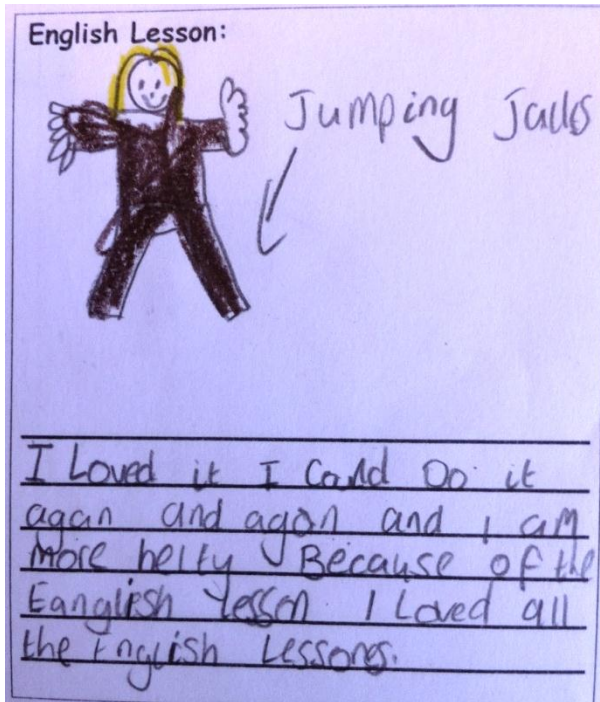 English Lesson:
Jumping Jacks
I Loved it I Could Do it
agan and agon and I am
More helty Because of the
Eanglish lesson I Loved all
the English Lessons.